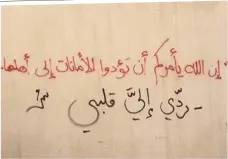 "إن الله يأمركم أن تؤدوا الأمانات إلى أهلها.
- ردّي إليَّ قلبي